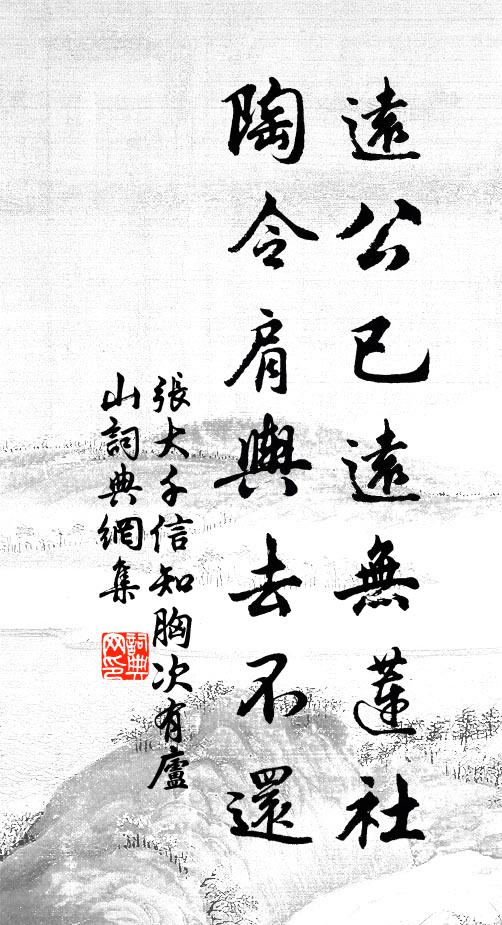 遠公已遠無蓮社
陶令肩輿去不還
張大千信知胸次有廬
山詞典網集
詞典
网印